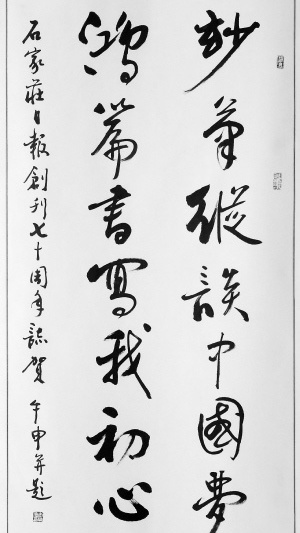 妙筆縱談中國夢
鴻篇書寫我初心
石家莊日報創刊七十周年誌賀 午申并題